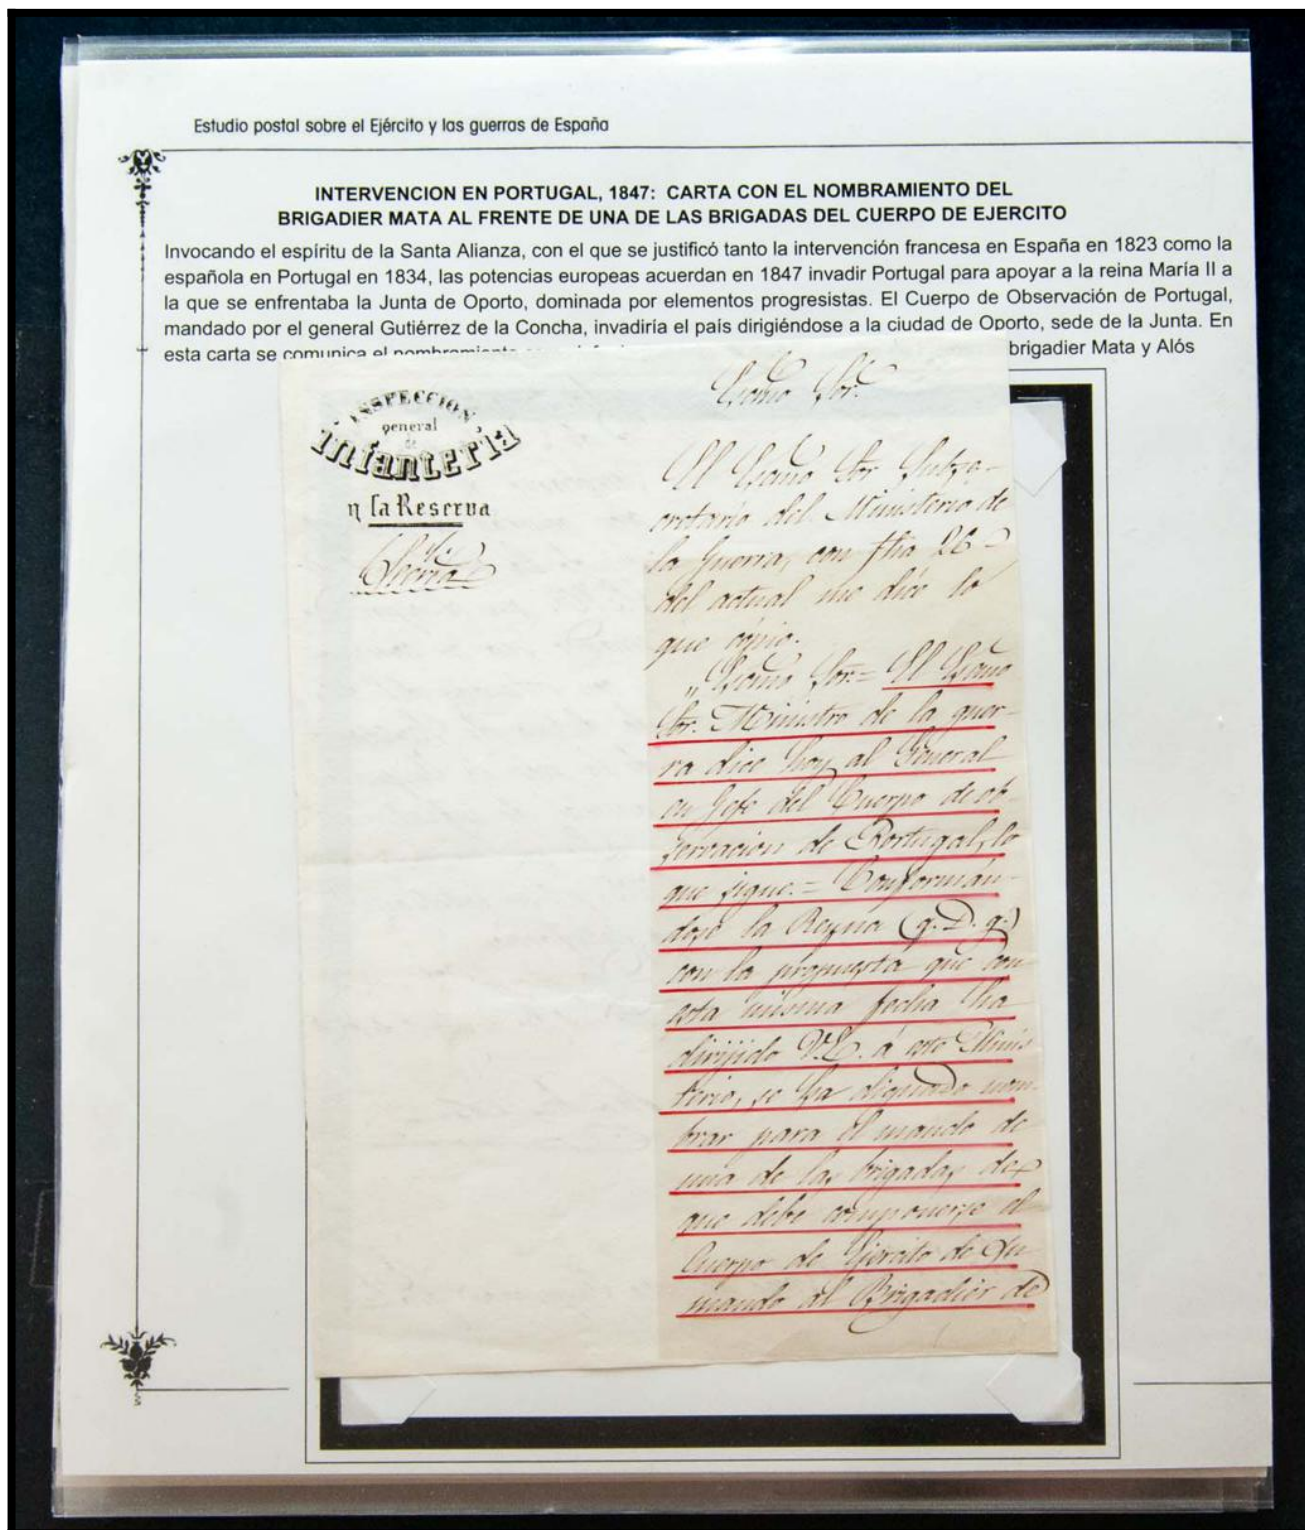 Estudio postal sobre el Ejército y las guerras de España
INTERVENCION EN PORTUGAL, 1847: CARTA CON EL NOMBRAMIENTO DEL
BRIGADIER MATA AL FRENTE DE UNA DE LAS BRIGADAS DEL CUERPO DE EJERCITO
Invocando el espíritu de la Santa Alianza, con el que se justificó tanto la intervención francesa en España en 1823 como la
española en Portugal en 1834, las potencias europeas acuerdan en 1847 invadir Portugal para apoyar a la reina María II a
la que se enfrentaba la Junta de Oporto, dominada por elementos progresistas. El Cuerpo de Observación de Portugal,
mandado por el general Gutiérrez de la Concha, invadiría el país dirigiéndose a la ciudad de Oporto, sede de la Junta. En
esta carta se comunica el nombramiento brigadier Mata y Alós
INSPECCION
general
de
infantería
y la Reserva
Secria
Escmo Sor.
El Escmo Sor Subse-
cretario del Ministerio de
la Guerra, con fha 26
del actual me dice lo
que copio.
"Escmo Sor.= El Escmo
Sor. Ministro de la guer-
ra dice hoy al General
en Gefe del Cuerpo de ob-
servacion de Portugal, lo
que sigue.= Conformán-
dose la Reyna (q. D. g.)
con la propuesta que con
esta misma fecha ha
dirijido V.E. á este Minis-
terio, se ha dignado nom-
brar para el mando de
una de las brigadas de
que debe componerse el
Cuerpo de Ejercito de su
mando al Brigadier de